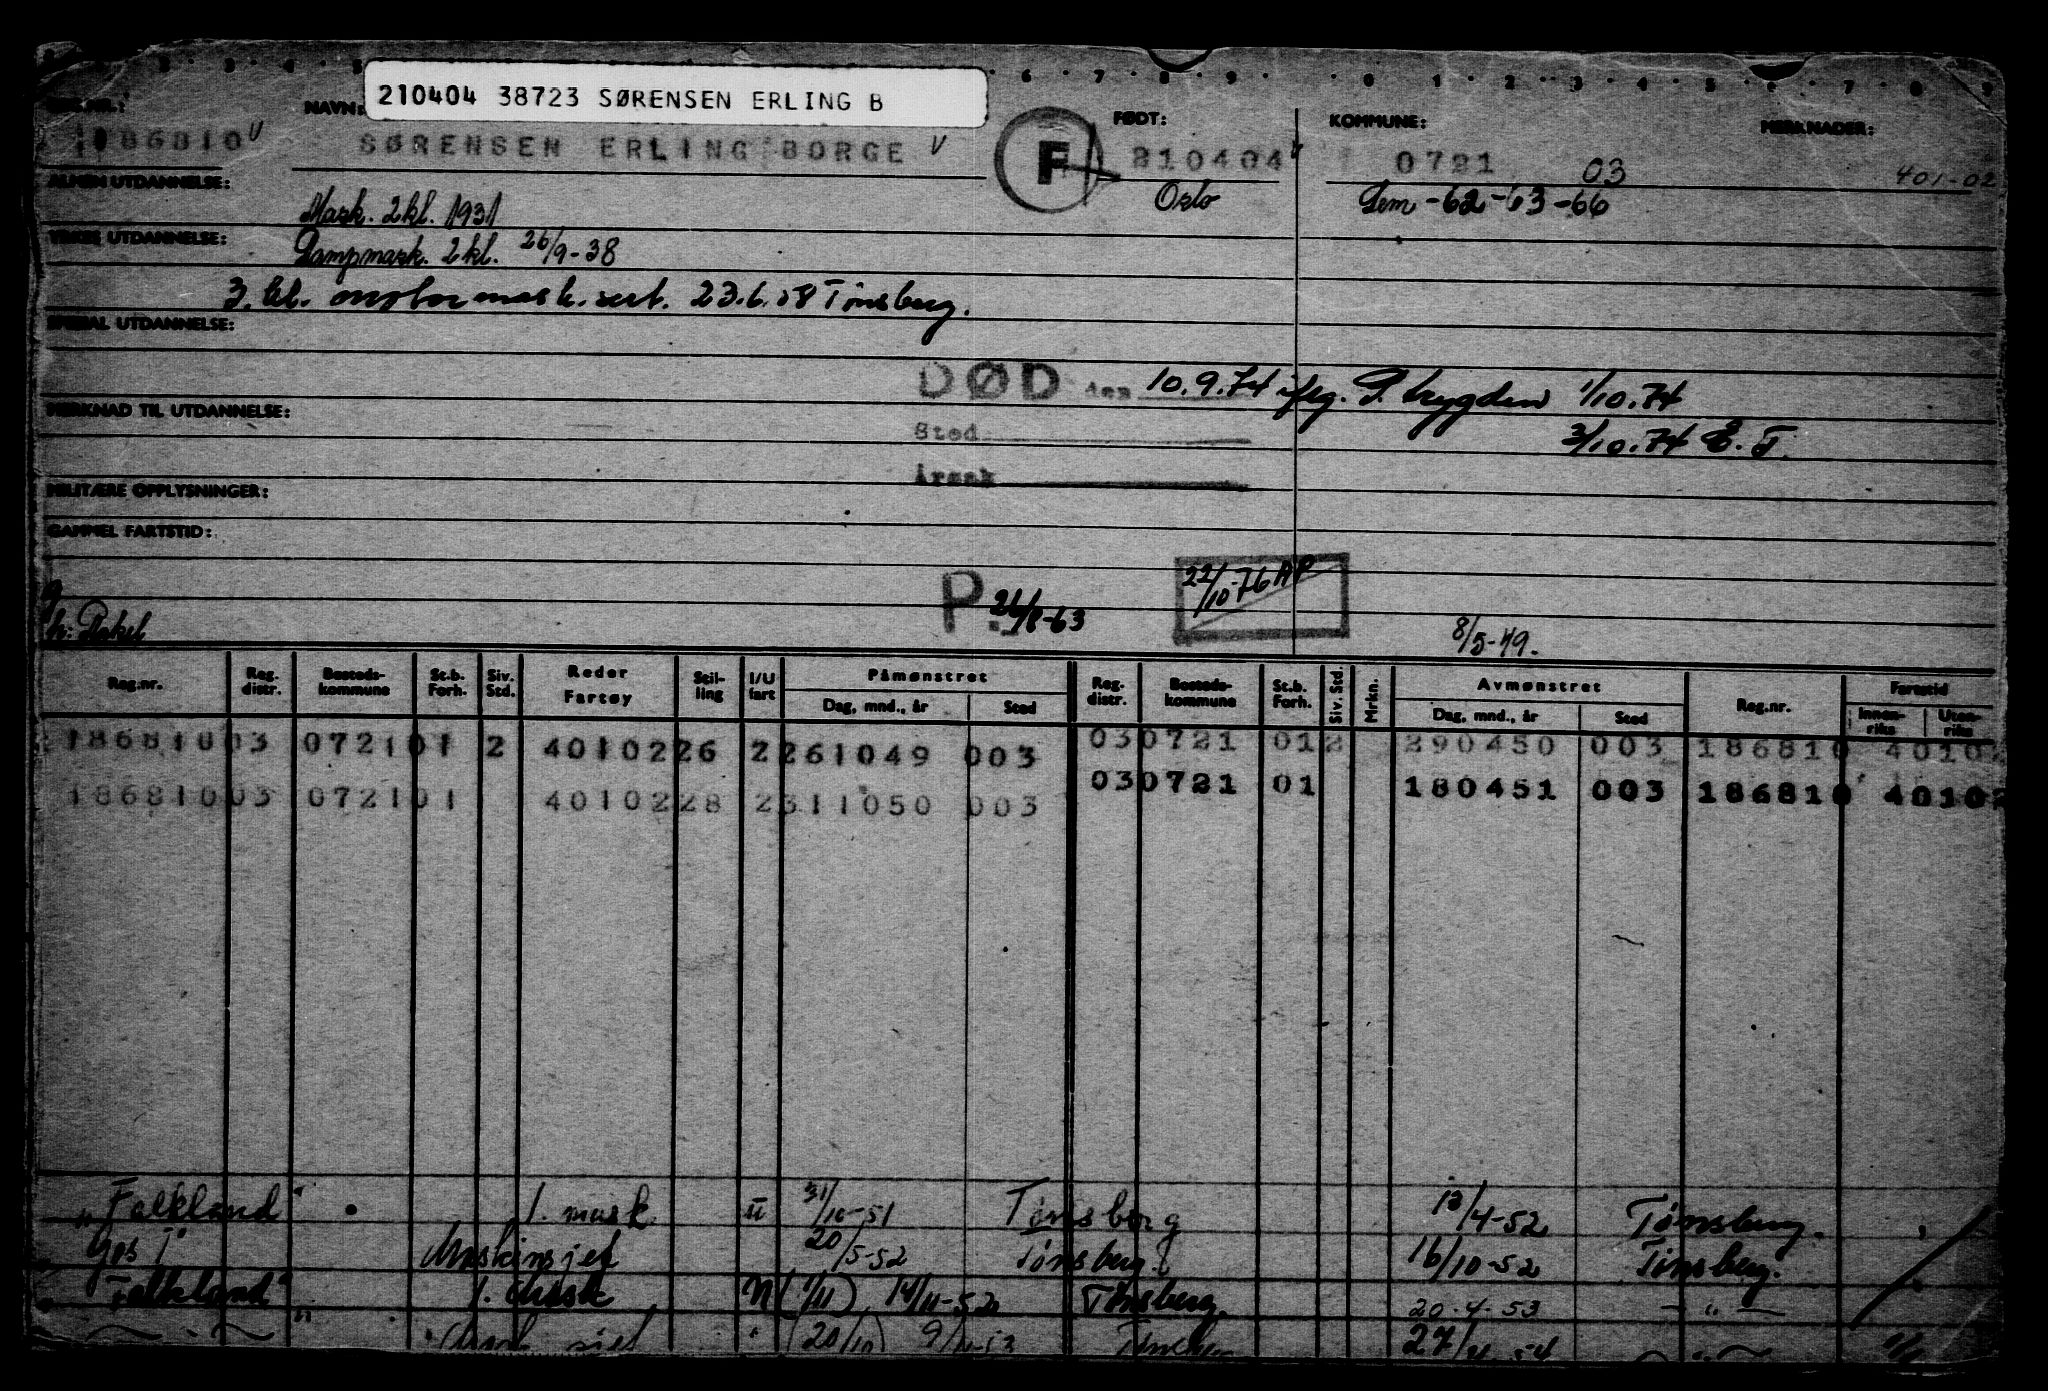 210404 38723 SØRENSEN ERLING B
NAVN: FØDT: KOMMUNE: MERKNADER:
186810 v SØRENSEN ERLING BORGE v F 210404 0721 03 401-02
ALMEN UTDANNELSE: Mask. 2kl. 1931 Oslo Sem -62-63-66
YRKES UTDANNELSE: Dampmask. 2kl. 26/9-38
3. kl. motormask.sert. 23.6.58 Tønsberg.
SPESIAL UTDANNELSE:
DØD den 10.9.74 iflg. P. trygden 1/10.74
MERKNAD TIL UTDANNELSE:
Sted 3/10.74 E. T.
Årsak
MILITÆRE OPPLYSNINGER:
GAMMEL FARTSTID:
P. 26/8-63 22/10-76 AP
8/5-49.
Reg.nr. Reg. distr. Bosteds-kommune St.b. Forh. Siv. Std. Reder Fartøy Stil-ling I/U fart Påmønstret Dag, mnd., år Sted Reg. distr. Bosteds-kommune St.b. Forh. Siv. Std. Mrkn. Avmønstret Dag, mnd., år Sted Reg.nr. Fartstid Innen-riks Uten-riks
186810 03 0721 01 2 40102 26 2 261049 003 03 0721 01 2 290450 003 186810 40102
186810 03 0721 01 40102 28 2 311050 003 03 0721 01 180451 003 186810 40102
"Falkland" 1. mask. u 31/10-51 Tønsberg 13/4-52 Tønsberg.
Gos I" Maskinsjef 20/5-52 Tønsberg 16/10-52 Tønsberg.
"Falkland" 1. Mask (1/11) 14/11-52 Tønsberg. 20-4-53 — " —
" (20/10) 27/4-54